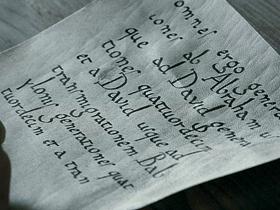 omnes ergo genera
iones ab Abraham
que ad David genera
tiones quatuordecim
et a David usque ad
transmigrationem Bab
ylonis generationes quat
tuordecim et a tran